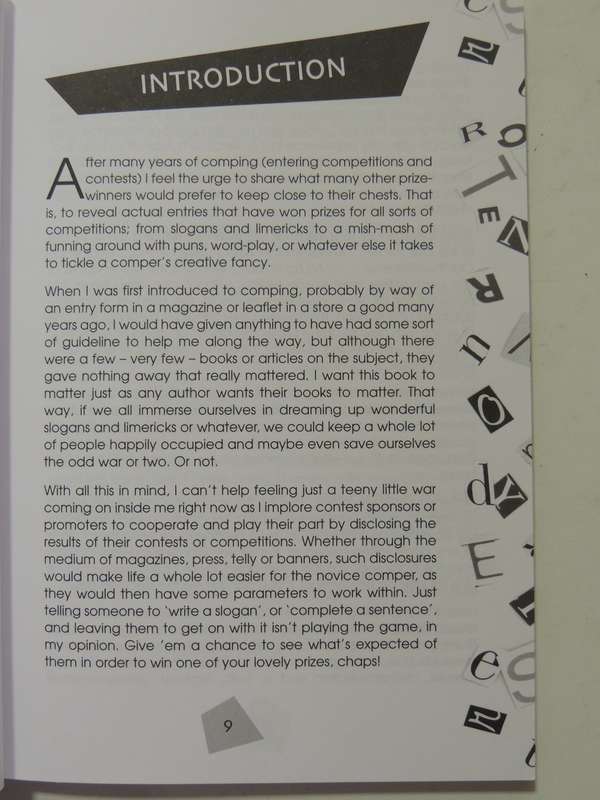 INTRODUCTION
After many years of comping (entering competitions and
contests) I feel the urge to share what many other prize-
winners would prefer to keep close to their chests. That
is, to reveal actual entries that have won prizes for all sorts of
competitions; from slogans and limericks to a mish-mash of
funning around with puns, word-play, or whatever else it takes
to tickle a comper's creative fancy.
When I was first introduced to comping, probably by way of
an entry form in a magazine or leaflet in a store a good many
years ago, I would have given anything to have had some sort
of guideline to help me along the way, but although there
were a few – very few – books or articles on the subject, they
gave nothing away that really mattered. I want this book to
matter just as any author wants their books to matter. That
way, if we all immerse ourselves in dreaming up wonderful
slogans and limericks or whatever, we could keep a whole lot
of people happily occupied and maybe even save ourselves
the odd war or two. Or not.
With all this in mind, I can't help feeling just a teeny little war
coming on inside me right now as I implore contest sponsors or
promoters to cooperate and play their part by disclosing the
results of their contests or competitions. Whether through the
medium of magazines, press, telly or banners, such disclosures
would make life a whole lot easier for the novice comper, as
they would then have some parameters to work within. Just
telling someone to 'write a slogan', or 'complete a sentence',
and leaving them to get on with it isn't playing the game, in
my opinion. Give 'em a chance to see what's expected of
them in order to win one of your lovely prizes, chaps!
9